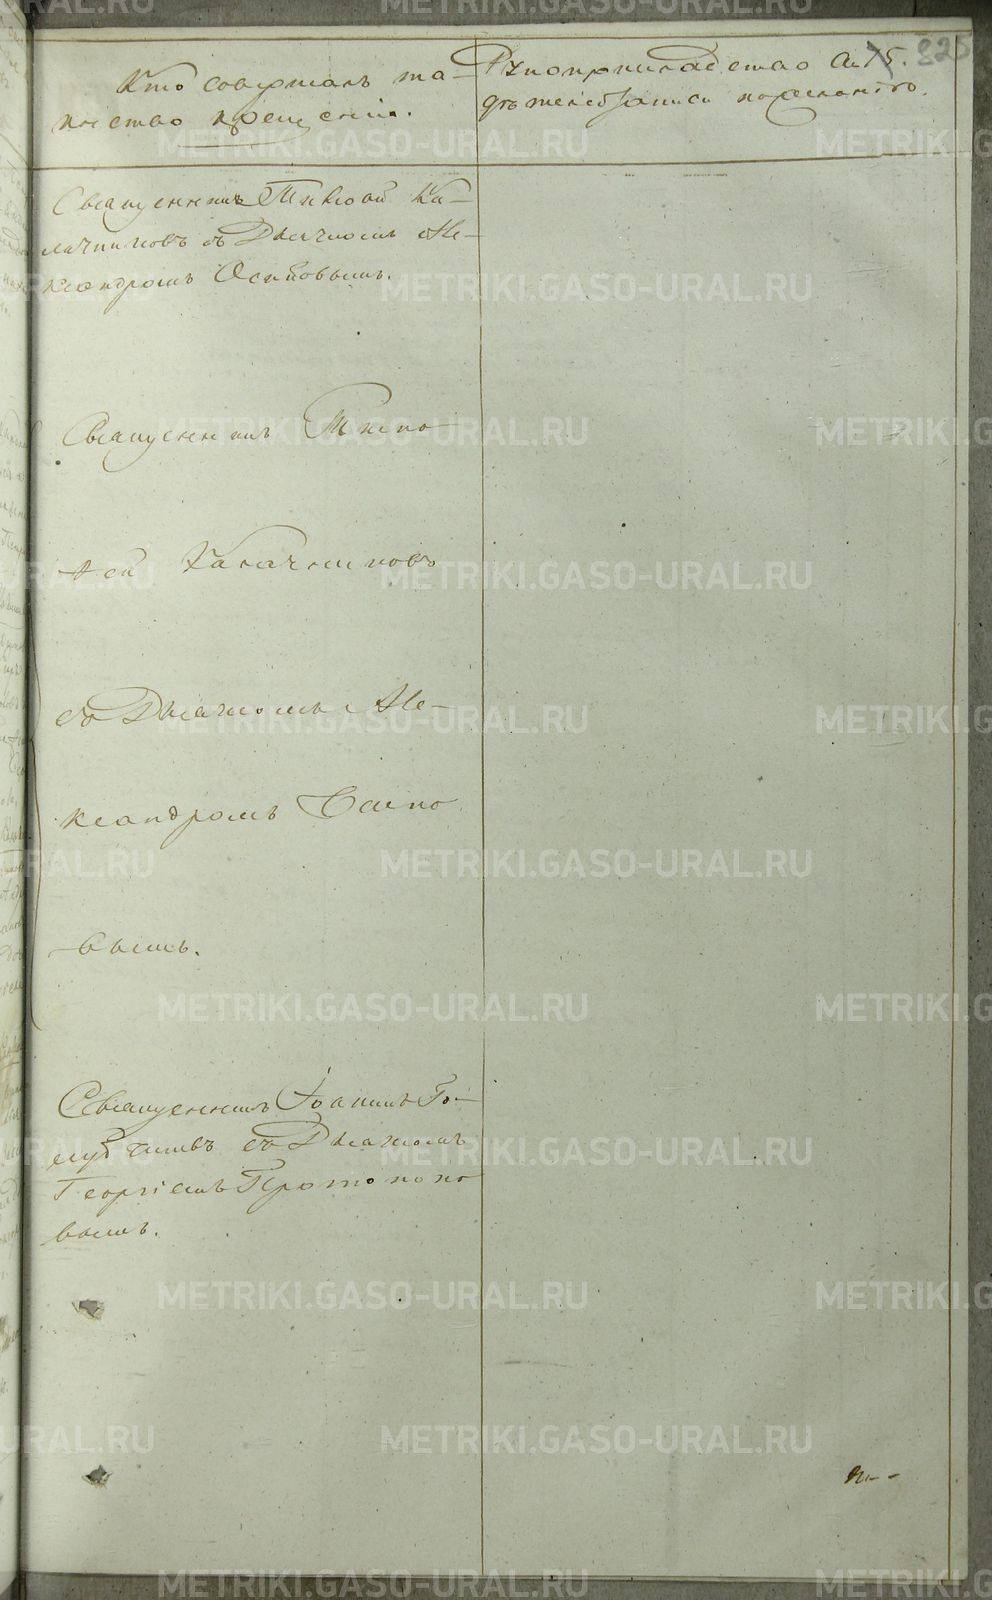 Кто совершалъ та-
инство крещенія.
Рукоприкладство сви-
дѣтелей записи по желанію.
Священникъ Тимофей Ка-
лачниковъ съ Дьячкомъ Але-
ксандромъ Осиповымъ.
Священникъ Тимо
фей Калачниковъ
съ Дьячкомъ Але-
ксандромъ Осипо
вымъ.
Священникъ Іоаннъ Го-
съ Дьячкомъ
Георгіемъ Протопопо
вымъ.
METRIKI.GASO-URAL.RU